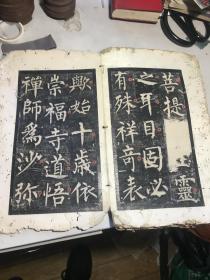 菩提靈
之耳目固必
有殊祥奇表
歟始十歲依
崇福寺道悟
禪師爲沙弥